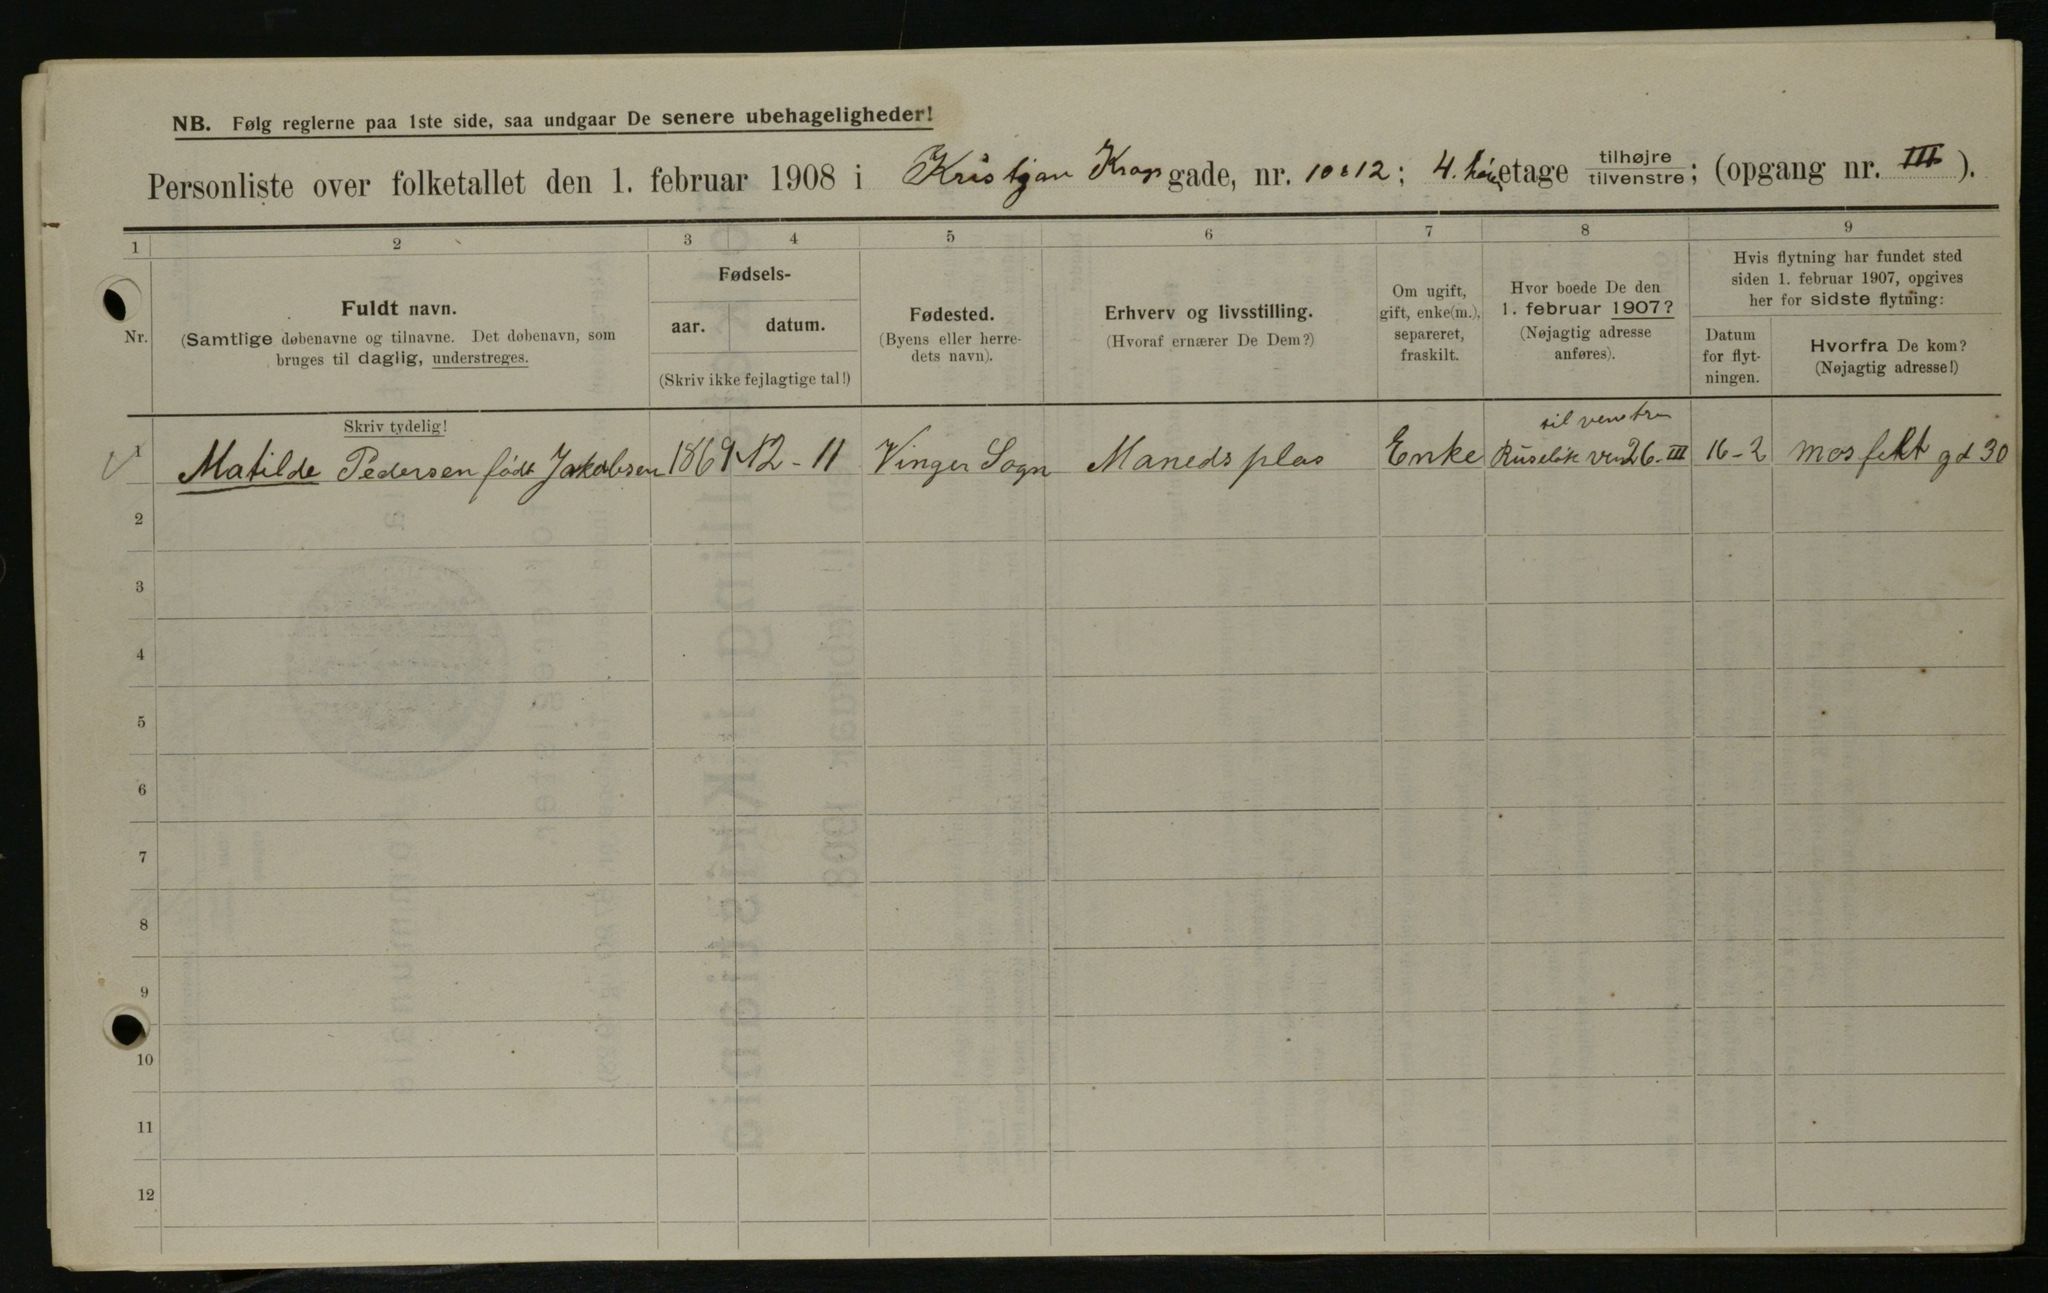 NB. Følg reglerne paa 1ste side, saa undgaar De senere ubehageligheder!
Personliste over folketallet den 1. februar 1908 i Kristjan Krogs gade, nr. 10 & 12; 4. etage tilhøjre tilvenstre; (opgang nr. III).
1 2 3 4 5 6 7 8 9
Nr.
Fuldt navn.
(Samtlige døbenavne og tilnavne. Det døbenavn, som
bruges til daglig, understreges.
Fødsels-
aar. datum.
(Skriv ikke fejlagtige tal!)
Fødested.
(Byens eller herre-
dets navn).
Erhverv og livsstilling.
(Hvoraf ernærer De Dem?)
Om ugift,
gift, enke(m.),
separeret,
fraskilt.
Hvor boede De den
1. februar 1907?
(Nøjagtig adresse
anføres).
Hvis flytning har fundet sted
siden 1. februar 1907, opgives
her for sidste flytning:
Datum
for flyt-
ningen.
Hvorfra De kom?
(Nøjagtig adresse!)
Skriv tydelig!
til venstre
1 Matilde Pedersen født Jakobsen 1869 12-11 Vinger Sogn Maneds plas Enke 26-III 16-2 mos felt gd 30
2
3
4
5
6
7
8
9
10
11
12